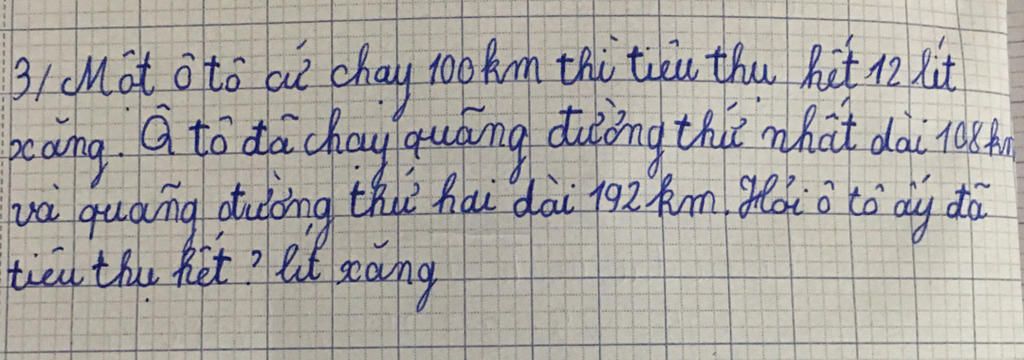 3/ Một ô tô cứ chạy 100km thì tiêu thụ hết 12 lít
xăng. Ô tô đã chạy quãng đường thứ nhất dài 108km
và quãng đường thứ hai dài 192km. Hỏi ô tô ấy đã
tiêu thụ hết ? lít xăng